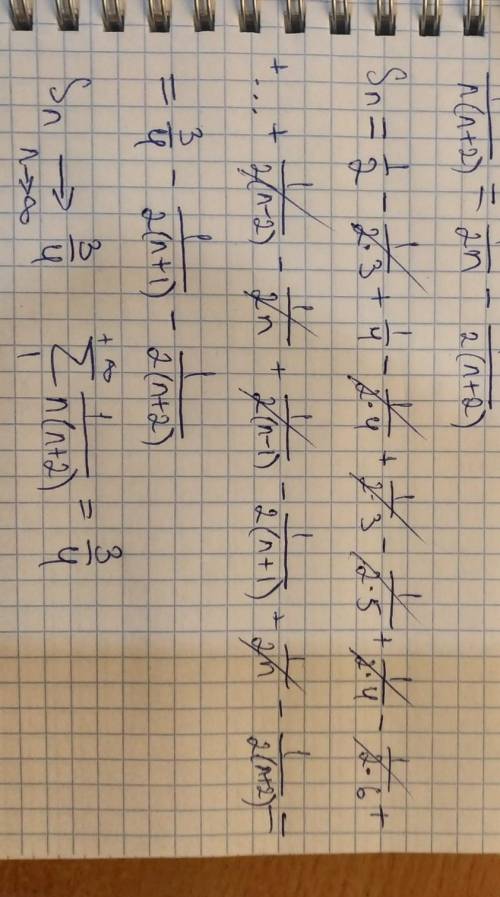 1/(n(n+2)) = 1/(2n) - 1/(2(n+2))
Sn = 1/2 - 1/(2·3) + 1/4 - 1/(2·4) + 1/(2·3) - 1/(2·5) + 1/(2·4) - 1/(2·6) +
+ ... + 1/(2(n-2)) - 1/(2n) + 1/(2(n-1)) - 1/(2(n+1)) + 1/(2n) - 1/(2(n+2)) =
= 3/4 - 1/(2(n+1)) - 1/(2(n+2))
Sn → 3/4 n→∞ +∞ ∑ 1 1/(n(n+2)) = 3/4